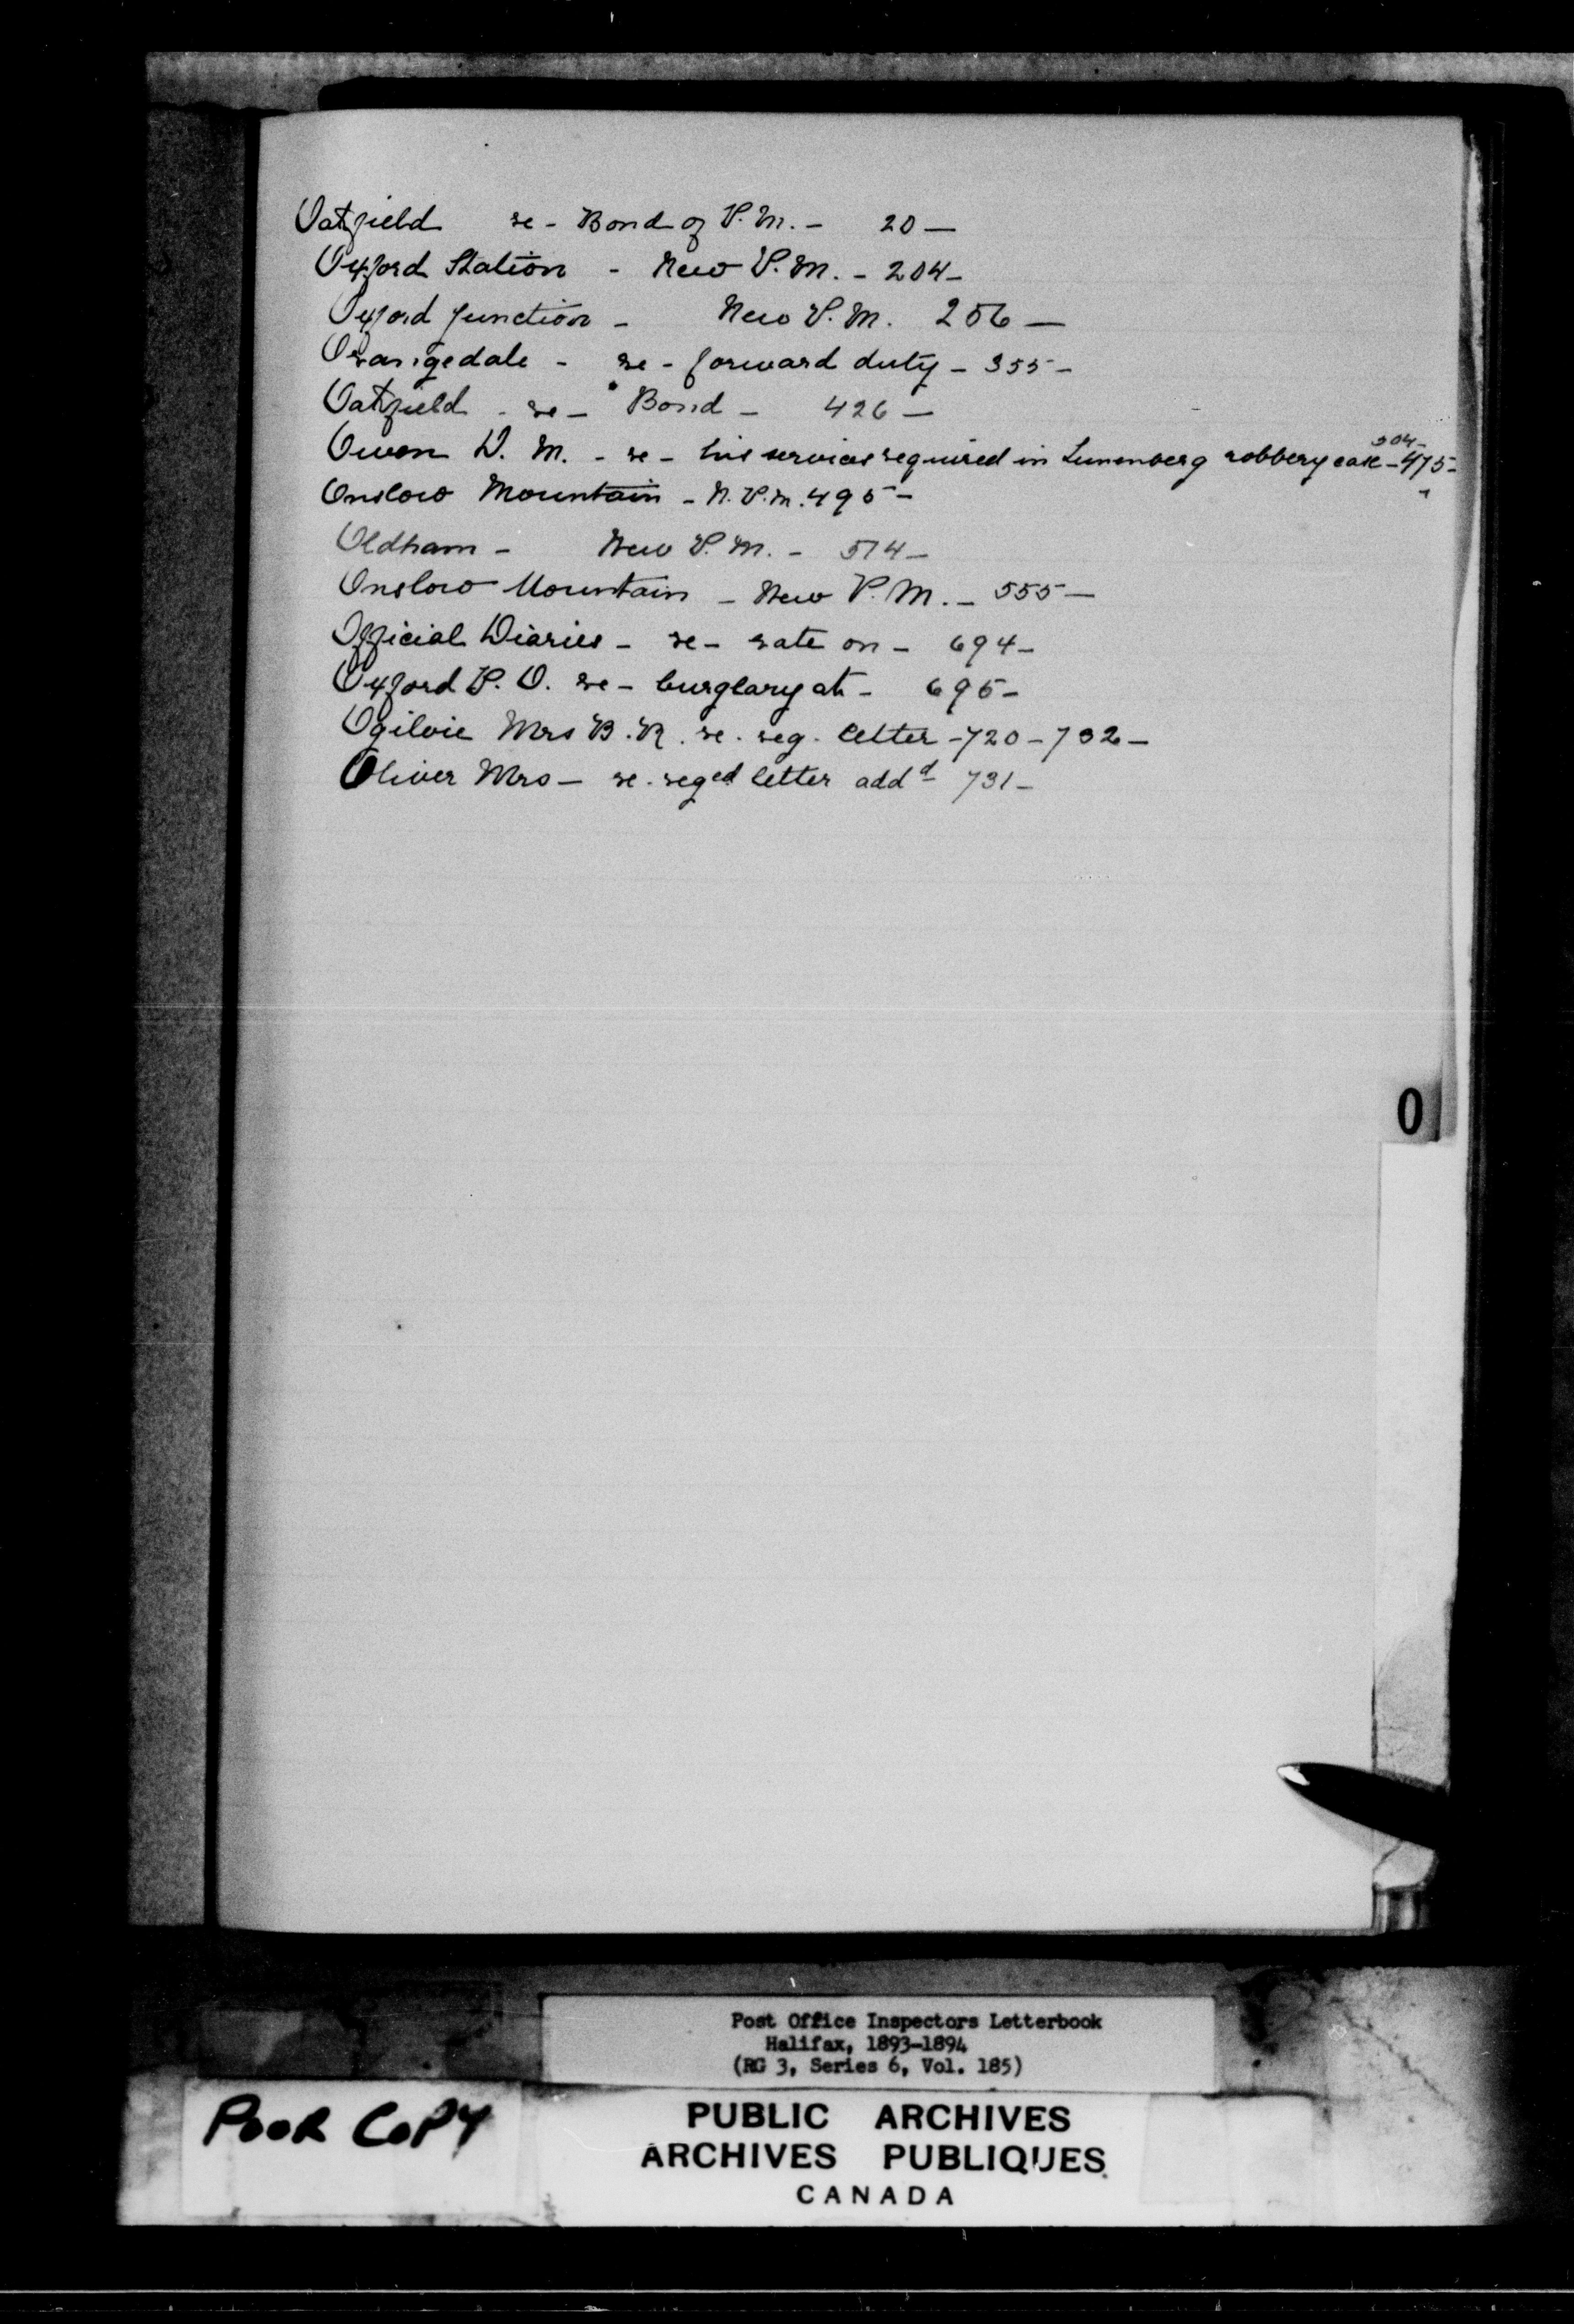 Oatfield re - Bond of P.M. - 20 -
Oxford Station - New P.M. - 204 -
Oxford Junction - New P.M. 256 -
Orangedale - re - forward duty - 355 -
Oatfield - re - Bond - 426 -
504 -
Owen D. M. - re - his services required in Lunenberg robbery case - 475 -
Onslow Mountain - N.P.M. 495 -
Oldham - New P.M. - 514 -
Onslow Mountain - New P.M. - 555 -
Official Diaries - re - rate on - 694 -
Oxford P.O. re - burglary at - 695 -
Ogilvie Mrs B.R. re. reg. letter - 720 - 732 -
Oliver Mrs - re. reged letter addd 731 -
O
Post Office Inspectors Letterbook
Halifax, 1893-1894
(RG 3, Series 6, Vol. 185)
POOR COPY
PUBLIC ARCHIVES
ARCHIVES PUBLIQUES
CANADA